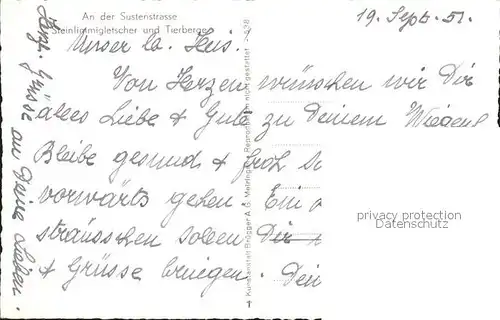 An der Sustenstrasse
Steinlimmigletscher und Tierberge
19. Sept. 51.
Unser lb. Heis.
Von Herzen wünschen wir Dir
alles Liebe + Gute zu Deinem Wiegenf
Bleibe gesund + froh
vorwärts gehen. Ein
sträusschen sollen Dir
+ Grüsse bringen. Dein
Herzl. Grüsse an Deine Lieben.
Kunstanstalt Brügger A.G. Meiringen Reproduktion nicht gestattet
privacy protection
Datenschutz